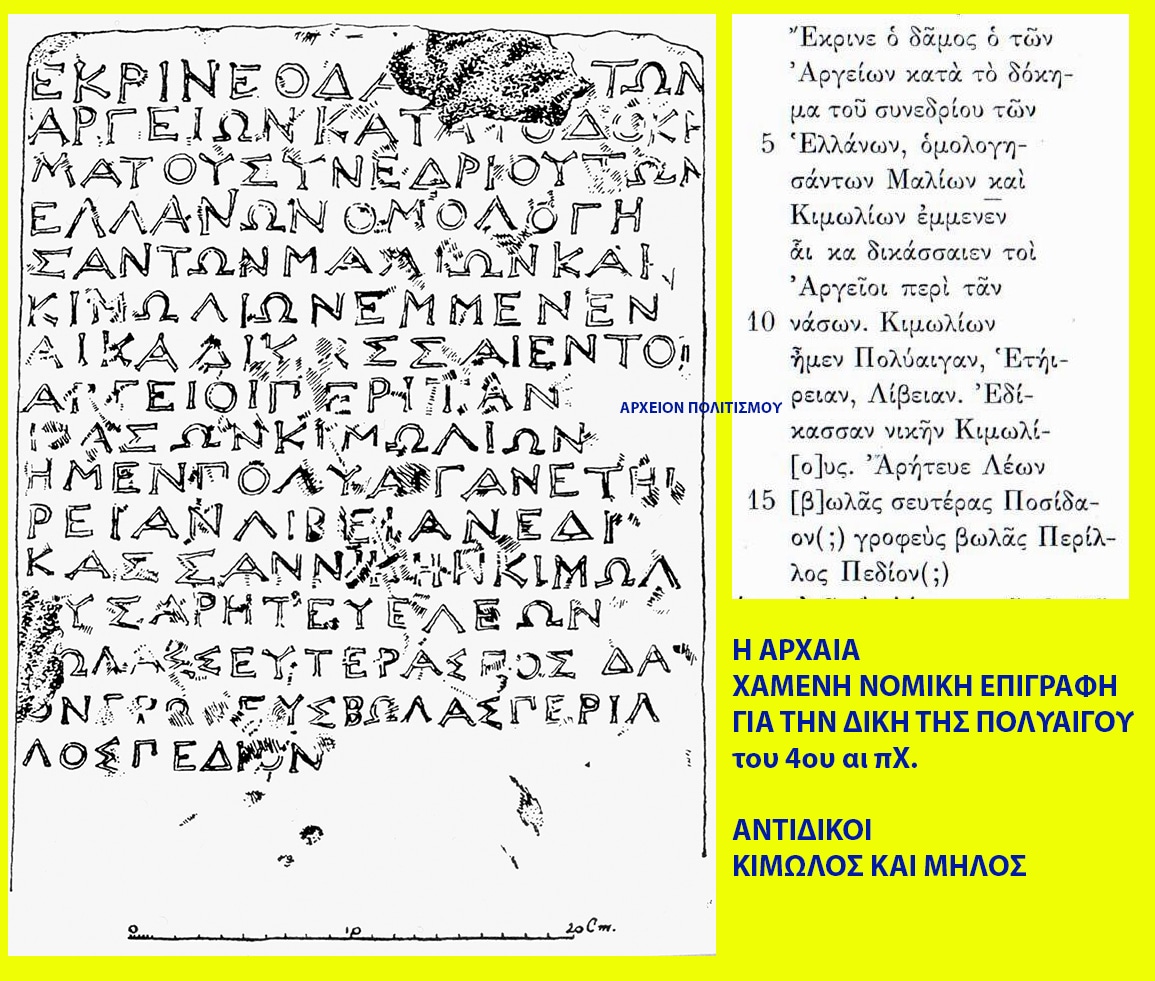 ΕΚΡΙΝΕΟΔΑ ΤΩΝ
ΑΡΓΕΙΩΝΚΑΤΑΤΟΔΟΚΗ
ΜΑΤΟΥΣΥΝΕΔΡΙΟΥΤΩΝ
ΕΛΛΑΝΩΝΟΜΟΛΟΓΗ
ΣΑΝΤΩΝΜΑΛΙΩΝΚΑΙ
ΚΙΜΩΛΙΩΝΕΜΜΕΝΕΝ
ΑΙΚΑΔΙΚΑΣΣΑΙΕΝΤΟΙ
ΑΡΓΕΙΟΙΠΕΡΙΤΑΝ
ΑΣΩΝΚΙΜΩΛΙΩΝ
ΗΜΕΝΠΟΛΥΑΙΓΑΝΕΤΗΙ
ΡΕΙΑΝΛΙΒΕΙΑΝΕΔΙ
ΚΑΣΣΑΝΝΙΚΗΝΚΙΜΩΛ
ΥΣΑΡΗΤΕΥΕΛΕΩΝ
ΩΛΑΣΣΕΥΤΕΡΑΣΠΟΣΔΑ
ΟΝΓΡΟΦΕΥΣΒΩΛΑΣΠΕΡΙΛ
ΛΟΣΠΕΔΙΟΝ
0 10 20 Cm.
Ἔκρινε ὁ δᾶμος ὁ τῶν
Ἀργείων κατὰ τὸ δόκη-
μα τοῦ συνεδρίου τῶν
5 Ἑλλάνων, ὁμολογη-
σάντων Μαλίων καὶ
Κιμωλίων ἐμμενεν
ἇι κα δικάσσαιεν τοὶ
Ἀργεῖοι περὶ τᾶν
10 νάσων. Κιμωλίων
ἦμεν Πολύαιγαν, Ἑτήι-
ρειαν, Λίβειαν. Ἐδί-
κασσαν νικῆν Κιμωλί-
[ο]υς. Ἀρήτευε Λέων
15 [β]ωλᾶς σευτέρας Ποσίδα-
ον(;) γροφεὺς βωλᾶς Περίλ-
λος Πεδίον(;)
ΑΡΧΕΙΟΝ ΠΟΛΙΤΙΣΜΟΥ
Η ΑΡΧΑΙΑ
ΧΑΜΕΝΗ ΝΟΜΙΚΗ ΕΠΙΓΡΑΦΗ
ΓΙΑ ΤΗΝ ΔΙΚΗ ΤΗΣ ΠΟΛΥΑΙΓΟΥ
του 4ου αι πΧ.
ΑΝΤΙΔΙΚΟΙ
ΚΙΜΩΛΟΣ ΚΑΙ ΜΗΛΟΣ